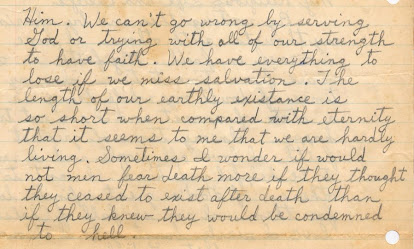 Him. We can't go wrong by serving
God or trying with all of our strength
to have faith. We have everything to
lose if we miss salvation. The
length of our earthly existance is
so short when compared with eternity
that it seems to me that we are hardly
living. Sometimes I wonder if would
not men fear death more if they thought
they ceased to exist after death than
if they knew they would be condemned
to hell.